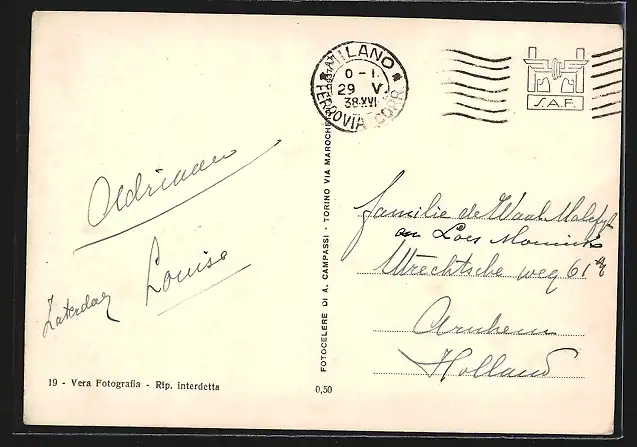 MILANO
FERROVIA CORR.
0 - 1
29 V.
38·XVI
S.A.F.
Adriana
Zaterdag
Louise
FOTOCELERE DI A. CAMPASSI · TORINO VIA MAROCHE
familie de Waal Malefyt
en Loes
Utrechtsche weg 61
Arnhem
Holland
19 - Vera Fotografia - Rip. interdetta
0,50